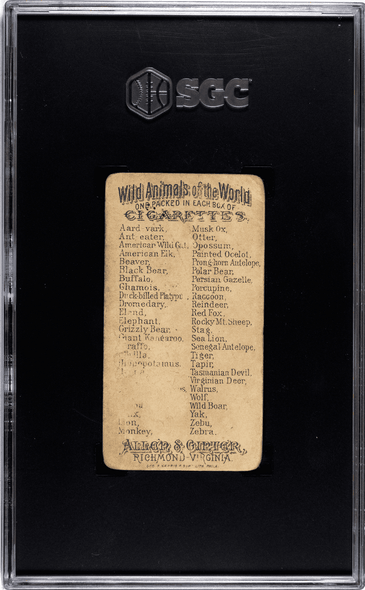 SGC
Wild Animals of the World
ONE PACKED IN EACH BOX OF
CIGARETTES.
Aard vark,
Ant eater,
American Wild Cat,
American Elk,
Beaver,
Black Bear,
Buffalo,
Chamois,
Duck-billed Platyp
Dromedary,
Eland,
Elephant,
Grizzly Bear,
Giant Kangaroo,
raffe,
illa,
Lion,
Monkey,
Musk Ox,
Otter,
Opossum,
Painted Ocelot,
Prong-horn Antelope,
Polar Bear,
Persian Gazelle,
Porcupine,
Raccoon,
Reindeer,
Red Fox,
Rocky Mt. Sheep,
Stag,
Sea Lion,
Senegal Antelope,
Tiger,
Tapir,
Tasmanian Devil,
Virginian Deer,
Walrus,
Wolf,
Wild Boar,
Yak,
Zebu,
Zebra.
ALLEN & GINTER,
RICHMOND VIRGINIA